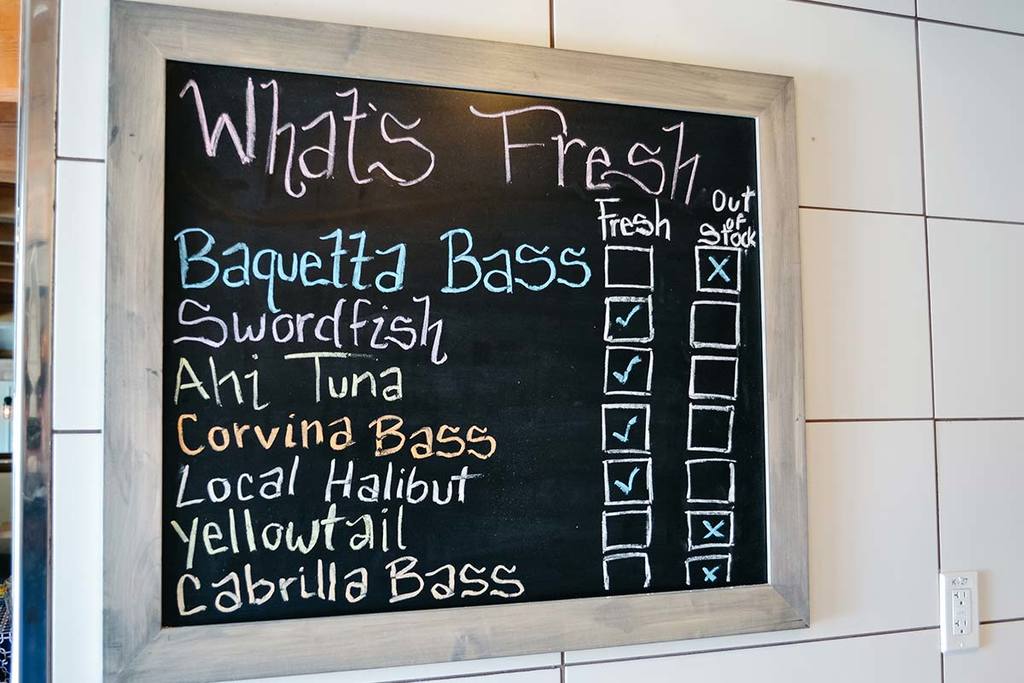 What's Fresh
Fresh
Out
of
Stock
Baquetta Bass
Swordfish
Ahi Tuna
Corvina Bass
Local Halibut
Yellowtail
Cabrilla Bass